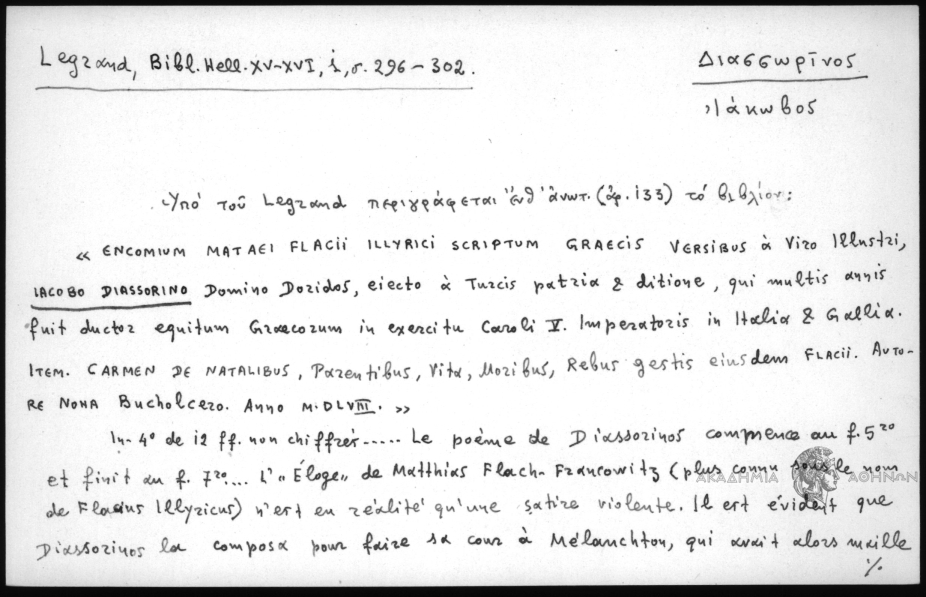 Legrand, Bibl. Hell. XV-XVI, i, σ. 296-302.
Διασσωρῖνος
Ἰάκωβος
Ὑπό τοῦ Legrand περιγράφεται ἐνθ' ἀνωτ. (ἀρ. 133) τό βιβλίον:
« ENCOMIUM MATAEI FLACII ILLYRICI SCRIPTUM GRAECIS VERSIBUS à Viro Illustri,
IACOBO DIASSORINO Domino Doridos, eiecto à Turcis patria & ditione, qui multis annis
fuit ductor equitum Graecorum in exercitu Caroli V. Imperatoris in Italia & Gallia.
ITEM. CARMEN DE NATALIBUS, Parentibus, Vita, Moribus, Rebus gestis eiusdem FLACII. AUTO-
RE NOHA Bucholcero. Anno M.DLVIII. »
In-4º de 12 ff. non chiffrés..... Le poème de Diassorinos commence au f. 5 ro
et finit au f. 7 ro... L' "Éloge" de Matthias Flach-Francowitz (plus connu sous le nom
de Flacius Illyricus) n'est en réalité qu'une satire violente. Il est évident que
Diassorinos la composa pour faire sa cour à Mélanchton, qui avait alors maille
%
ΑΚΑΔΗΜΙΑ ΑΘΗΝΩΝ